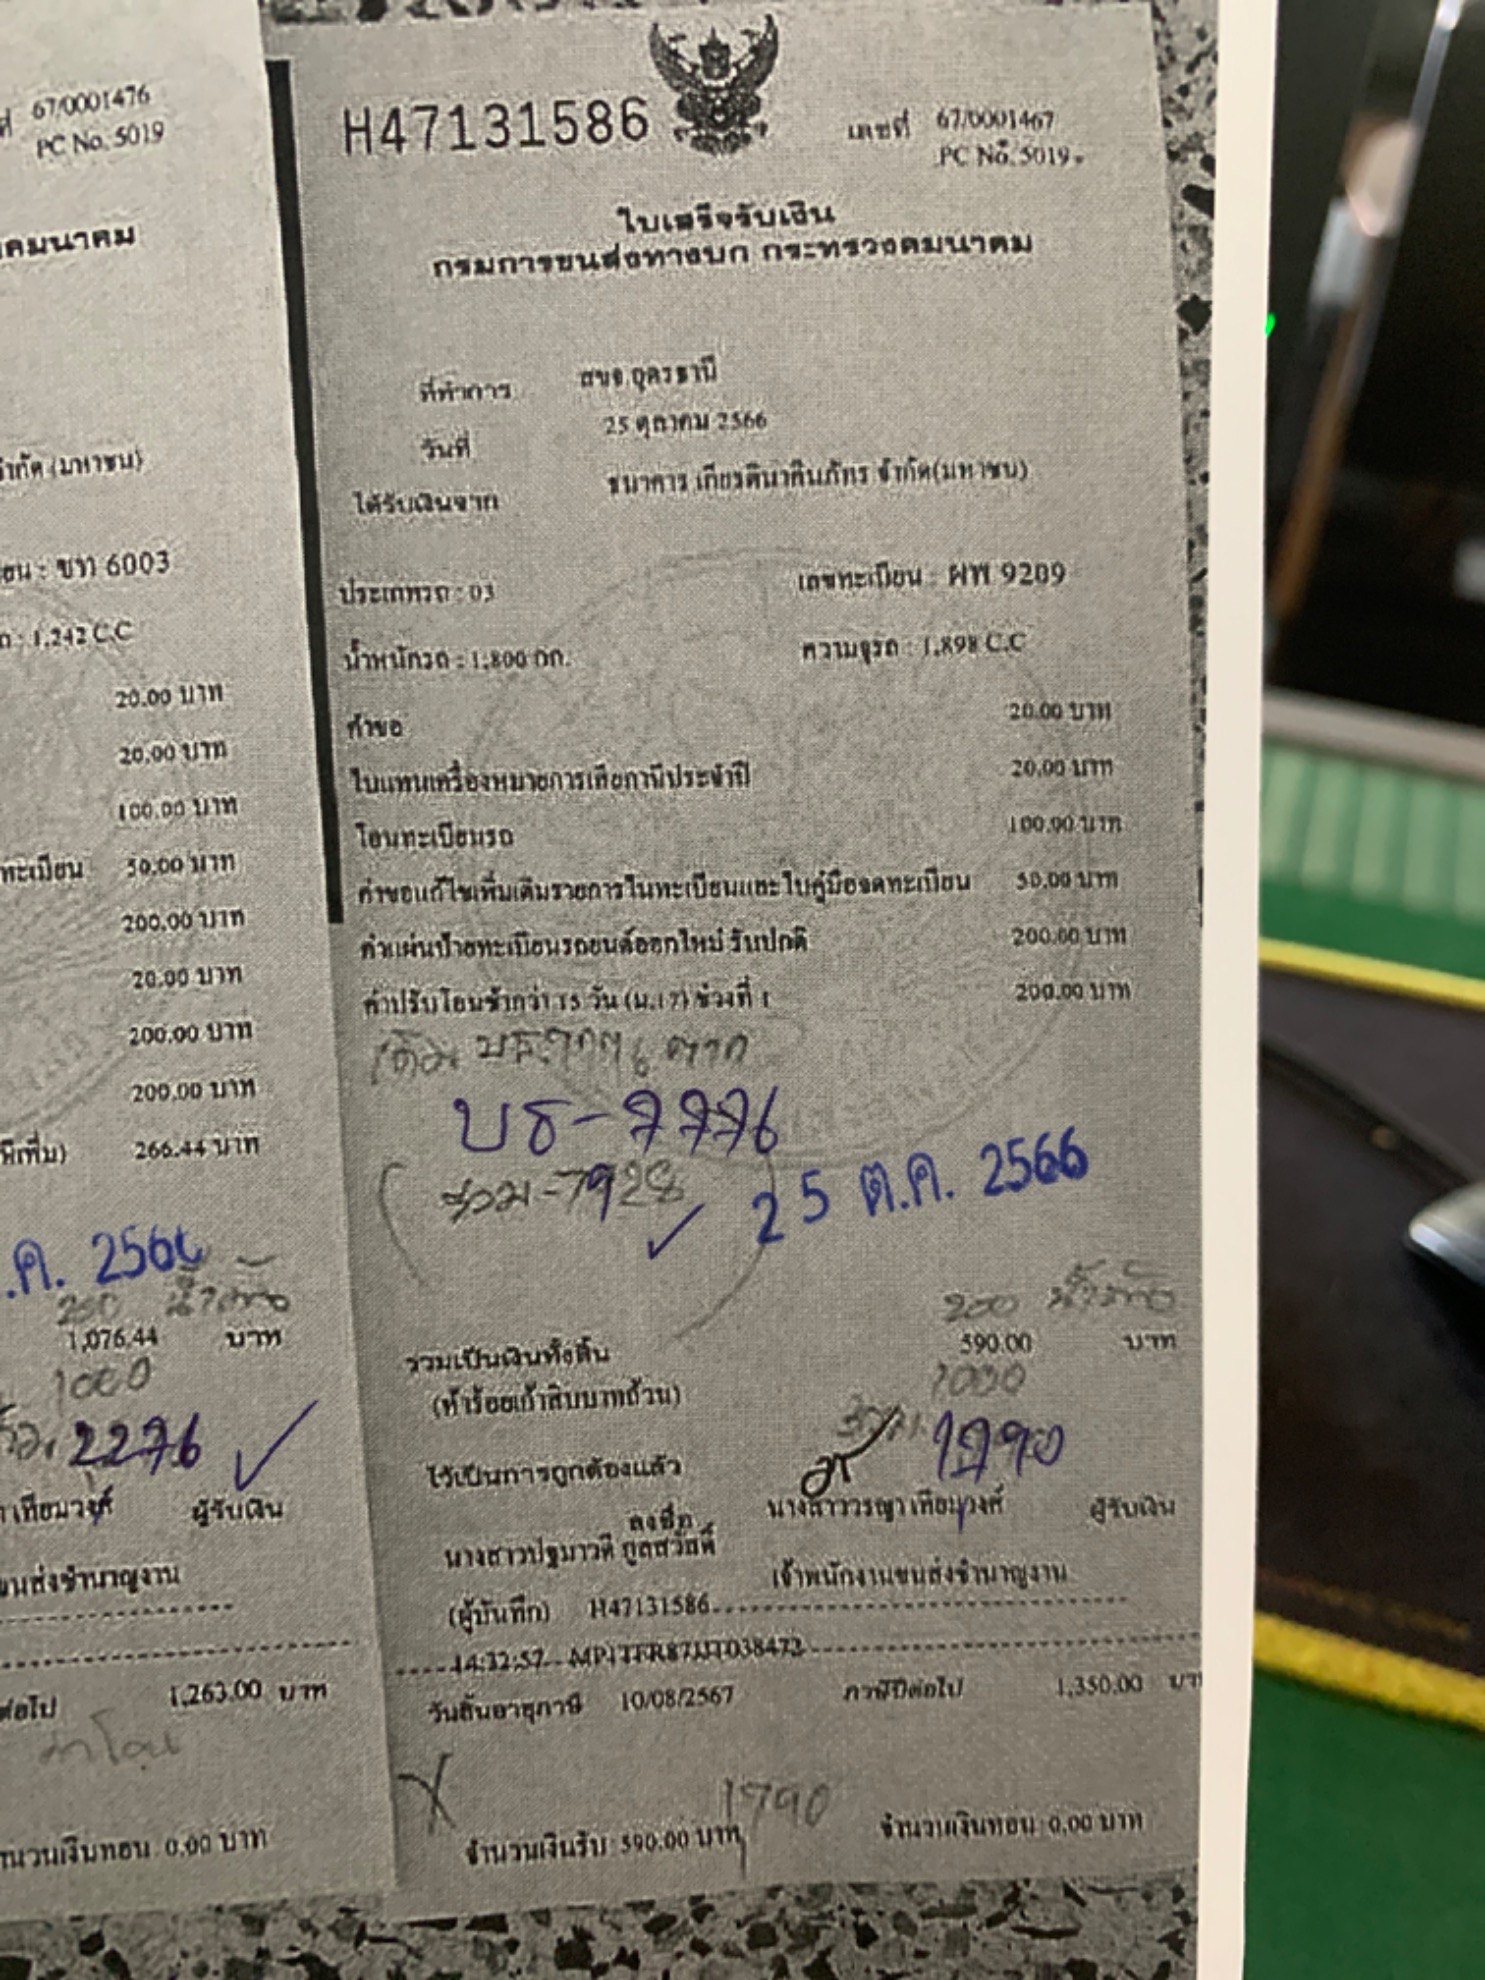 67/0001476
PC No. 5019
คมนาคม
จำกัด (มหาชน)
ขท 6003
: 1,242 C.C
20.00 บาท
20.00 บาท
100.00 บาท
ทะเบียน 50.00 บาท
200.00 บาท
20.00 บาท
200.00 บาท
200.00 บาท
266.44 บาท
.ค. 2566
200
1,076.44 บาท
1000
2276
เทียมวงศ์ ผู้รับเงิน
ขนส่งชำนาญงาน
ต่อไป 1,263.00 บาท
จำนวนเงินทอน 0.00 บาท
H47131586
เลขที่ 67/0001467
PC No. 5019
ใบเสร็จรับเงิน
กรมการขนส่งทางบก กระทรวงคมนาคม
ที่ทำการ สขจ.อุดรธานี
วันที่ 25 ตุลาคม 2566
ได้รับเงินจาก ธนาคาร เกียรตินาคินภัทร จำกัด(มหาชน)
ประเภทรถ : 03 เลขทะเบียน : ผพ 9209
น้ำหนักรถ : 1,800 กก. ความจุรถ : 1,898 C.C
คำขอ 20.00 บาท
ใบแทนเครื่องหมายการเสียภาษีประจำปี 20.00 บาท
โอนทะเบียนรถ 100.00 บาท
ค่าขอแก้ไขเพิ่มเติมรายการในทะเบียนและใบคู่มือจดทะเบียน 50.00 บาท
ค่าแผ่นป้ายทะเบียนรถยนต์ออกใหม่ รับปกติ 200.00 บาท
ค่าปรับโอนช้ากว่า 15 วัน (ม.17) ช่วงที่ 1 200.00 บาท
เดิม ตาก
บธ-7776
รวม-7928
25 ต.ค. 2566
200
รวมเป็นเงินทั้งสิ้น 590.00 บาท
(ห้าร้อยเก้าสิบบาทถ้วน) 1000
รวม 1790
ไว้เป็นการถูกต้องแล้ว
ลงชื่อ นางสาววรญา เทียมวงศ์ ผู้รับเงิน
นางสาวปฐมาวดี กูลสวัสดิ์
เจ้าพนักงานขนส่งชำนาญงาน
(ผู้บันทึก) H47131586
14:32:57 MP1TFR87JJT038472
วันสิ้นอายุภาษี 10/08/2567 ภาษีปีต่อไป 1,350.00
1790
จำนวนเงินรับ 590.00 บาท จำนวนเงินทอน 0.00 บาท